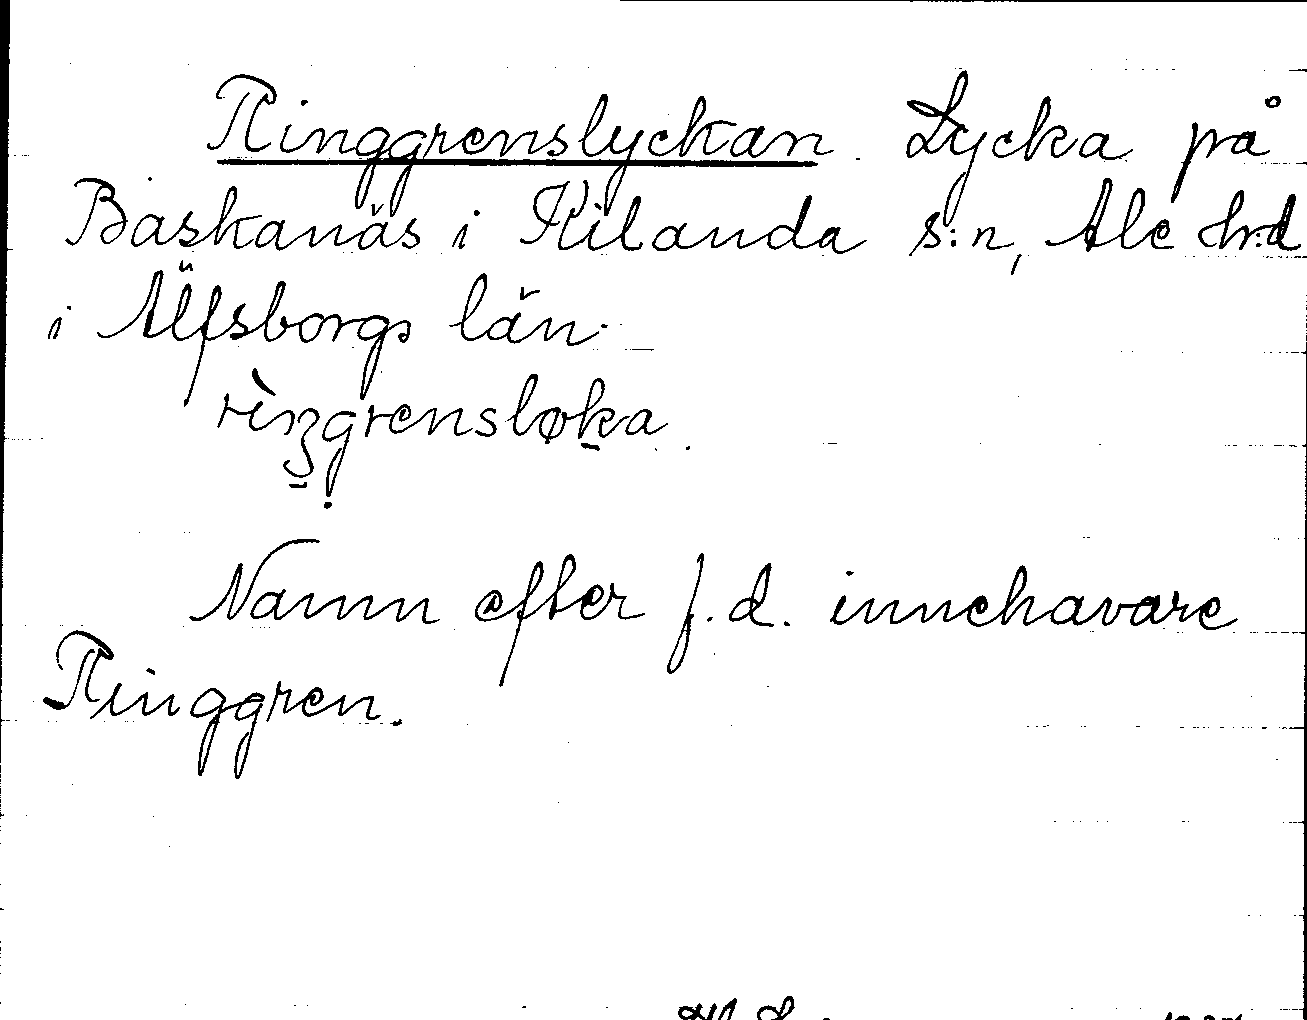 Ringgrenslyckan. Lycka på
Båskanäs i Kilanda s:n, Ale h:d
i Älfsborgs län.
rìŋgrensløka.
Namn efter f.d. innehavare
Ringgren.